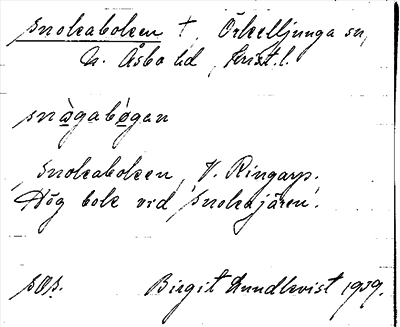 Snokaboken †, Örkelljunga sn,
N. Åsbo hd, Krist. l.
snògabógan
Snokaboken, V. Ringarp.
Hög bok vid 'Snokajären'.
Birgit Lundkvist 1939.